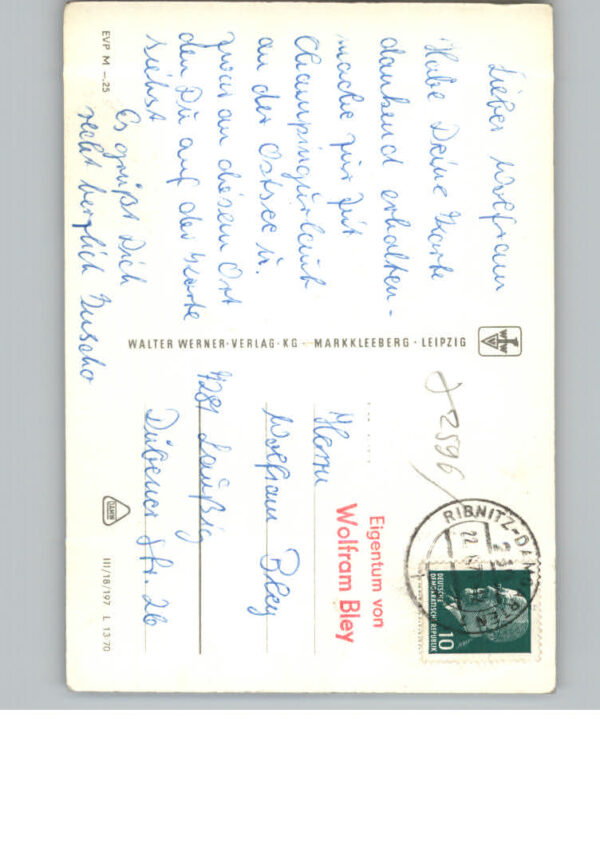 Lieber Wolfram
Habe Deine Karte
dankend erhalten-
mache zur Zeit
Campingurlaub
an der Ostsee u.
zwar an diesem Ort
den Du auf der Karte
siehst
Es grüßt Dich
recht herzlich
EVP M -.25
WALTER WERNER·VERLAG·KG - MARKKLEEBERG·LEIPZIG
WWV
2596
RIBNITZ-DAM GARTEN
22.
DEUTSCHE
DEMOKRATISCHE REPUBLIK
10
Eigentum von
Wolfram Bley
Herrn
Wolfram Bley
7281 Laußig
Dübener Str. 26
III/18/197 L 13 70